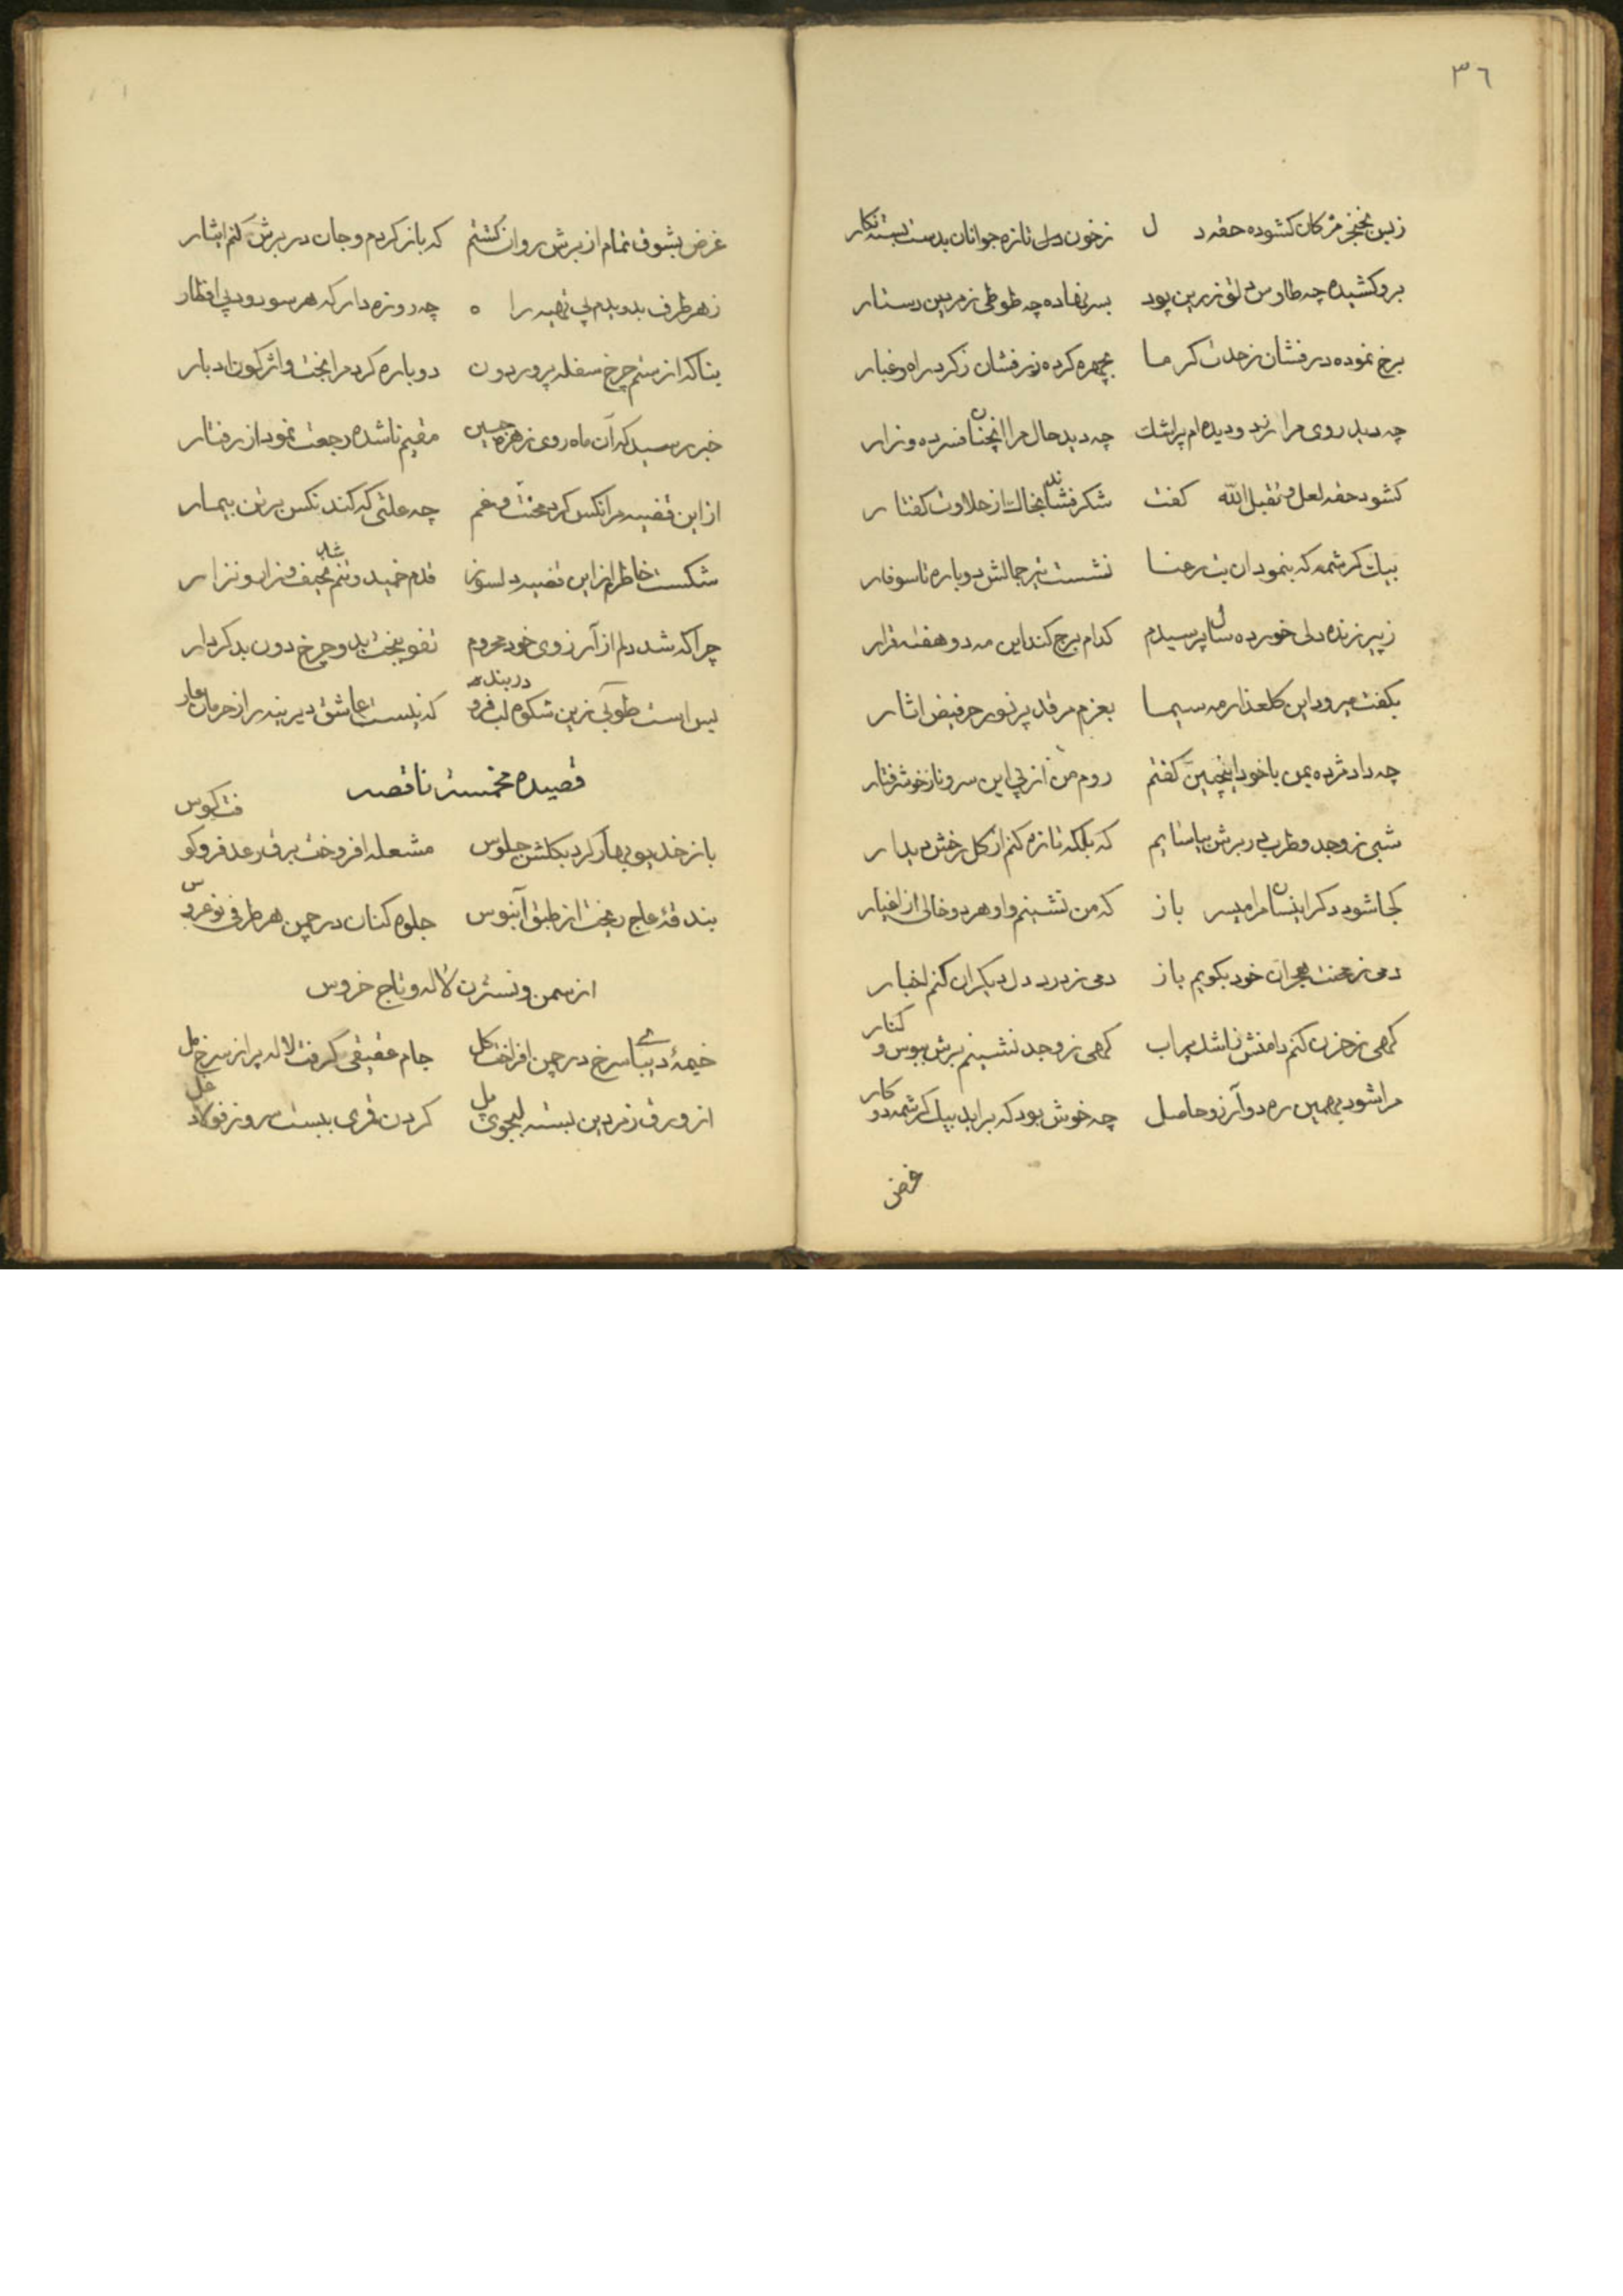 ٣٦
زبس بخنجر مژکان کشوده حقه دل زخون دل تازه جوانان بدست بسته نکار
برو کشیده چه طاوس دلق زرین پود بسر نهاده چه طوطی زمردین دستار
برخ نموده درفشان زحدت کرما بچهره کرده زرفشان زکرد راه و غبار
چه دید روی مرا زرد و دیده ام پراشک چه دید حال مرا انچنان فسرده و زار
کشود حقه لعل و تقبل الله کفت شکر فشاند بخاک از حلاوت کفتار
بیک کرشمه که بنمود ان بت رعنا نشست تیر جمالش دوباره تا سوفار
زپیر زنده دلی خورده سال پرسیدم کدام برج کند این مه دو هفته قرار
بکفت میرود این کلعذار مه سیما بعزم مرقد پرنور حر فیض اثار
چه داد مژده بمن با خود اینچنین کفتم روم من از پی این سرو ناز خوش رفتار
شبی زوجد و طرب در برش بیاسایم که بلکه تازه کنم از کل رخش دیدار
کجا شود دکر اینسان مرا میسر باز که من نشینم و او هر دو خالی از اغیار
دمی زمحنت هجران خود بکویم باز دمی زدرد دل دیکران کنم اخبار
کهی زحزن کنم دامنش زاشک پراب کهی زوجد نشینم برش ببوس و کنار
مرا شود بهمین ره دو آرزو حاصل چه خوش بود که براید بیک کرشمه دو کار
غرض
غرض بشوق تمام از برش روان کشتم که باز کردم و جان در برش کنم ایثار
زهر طرف بدویدم پی تهیه راه چه روزه دار که هر سو رود پی افطار
بناکه از ستم چرخ سفله پرور دون دوباره کرد مرا بخت واژکون ادبار
خبر رسید که آن ماه روی زهره جبین مقیم ناشده رجعت نمود از رفتار
از این قضیه مرا نکس کرد محنت و غم چه علتی که کند نکس بر تن بیمار
شکست خاطرم از این قضیه دلسوز قدم خمید و تنم شد نحیف و زار و نزار
چرا که شد دلم از آرزوی خود محروم تفو ببخت بد و چرخ دون بد کردار
بس است طوبی زین شکوه لب فرو دربند که نیست عاشق دیرینه را زحرمان عار
قصیده مخمسه ناقصه
باز خدیو بهار کرد بکلشن جلوس مشعله افروخت برق رعد فرو کوفت کوس
بندقهٔ عاج ریخت از طبق آبنوس جلوه کنان در چمن هر طرفی نو عروس
از سمن و نسترن لاله و تاج خروس
خیمهٔ دیبای سرخ در چمن افراخت کل جام عقیقی کرفت لاله پر از سرخ مل
از ورق زمردین بسته بجوی پل کردن قمری ببست سرو زفولاد غل